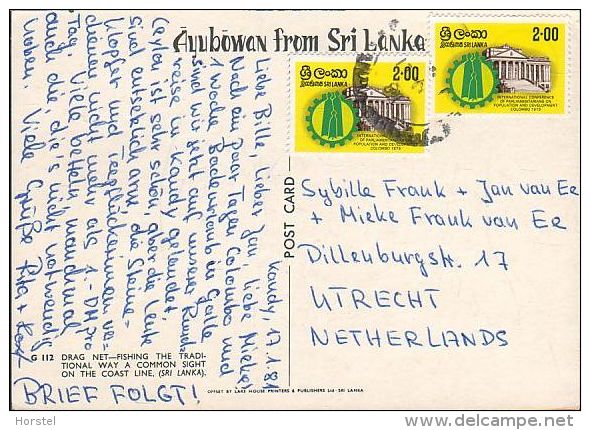 Āyubōwan from Sri Lanka
Kandy, 17.1.81
Liebe Bille, lieber Jan, liebe Mieke!
Nach ein paar Tagen Colombo und
1 Woche Badeurlaub in Galle
sind wir jetzt auf unserer Rund-
reise in Kandy gelandet.
Ceylon ist sehr schön, aber die Leute
sind entsetzlich arm, die Steine-
klopfer und Teepflückerinnen ver-
dienen nicht mehr als 1.- DM pro
Tag. Viele betteln, manchmal
auch die, die's nicht notwendig
haben. Viele Grüße Rita +
BRIEF FOLGT!
G 112 DRAG NET—FISHING THE TRADI-
TIONAL WAY A COMMON SIGHT
ON THE COAST LINE, (SRI LANKA).
POST CARD
OFFSET BY LAKE HOUSE PRINTERS & PUBLISHERS Ltd - SRI LANKA
ශ්‍රී ලංකා
இலங்கை SRI LANKA
2·00
INTERNATIONAL CONFERENCE
OF PARLIAMENTARIANS ON
POPULATION AND DEVELOPMENT
COLOMBO 1979
ශ්‍රී ලංකා
இலங்கை SRI LANKA
2·00
INTERNATIONAL CONFERENCE
OF PARLIAMENTARIANS ON
POPULATION AND DEVELOPMENT
COLOMBO 1979
Sybille Frank + Jan van Ee
+ Mieke Frank van Ee
Dillenburgstr. 17
UTRECHT
NETHERLANDS
Horstel
delcampe.net